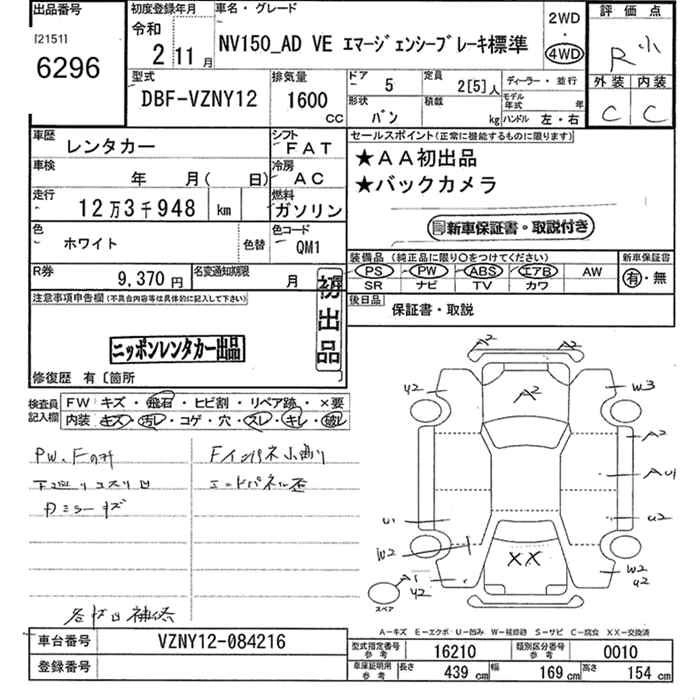 出品番号
[2151]
6296
初度登録年月
令和
2年11月
車名・グレード
NV150_AD VE エマージェンシーブレーキ標準
2WD
・
4WD
評価点
R 小
外装 内装
C C
型式
DBF-VZNY12
排気量
1600
CC
ドア
5
定員
2[5]人
ディーラー・並行
形状
バン
積載
kg
モデル年式
年
ハンドル 左・右
車歴
レンタカー
シフト
FAT
車検
年 月( 日)
冷房
AC
走行
12万3千948 km
燃料
ガソリン
色
ホワイト
色替
色コード
QM1
R券
9,370円
名変通知期限
月
セールスポイント(正常に機能するものに限ります)
★AA初出品
★バックカメラ
新車保証書・取説付き
装備品(純正品に限り○をつけてください)
PS PW ABS エアB AW
SR ナビ TV カワ
新車保証書
有・無
後日品
保証書・取説
注意事項申告欄(不具合内容等は具体的に記入して下さい)
初出品
ニッポンレンタカー出品
修復歴 有〔箇所
検査員記入欄
FW キズ・飛石・ヒビ割・リペア跡・×要
内装 キズ・汚レ・コゲ・穴・スレ・キレ・破レ
PW、Fのみ
Fインパネ小曲り
下廻りコスリ凹
エンドパネル歪
Dミラーキズ
各所凹補修
A2
A2
A2
U2
W3
A2
AU1
U1
U2
W2
XX
A1
U2
W2
U2
スペア
A-キズ E-エクボ U-凹み W-補修跡 S-サビ C-腐食 XX-交換済
車台番号
VZNY12-084216
登録番号
型式指定番号
参考
16210
類別区分番号
参考
0010
車庫証明用
参考
長さ
439 cm
幅
169 cm
高さ
154 cm